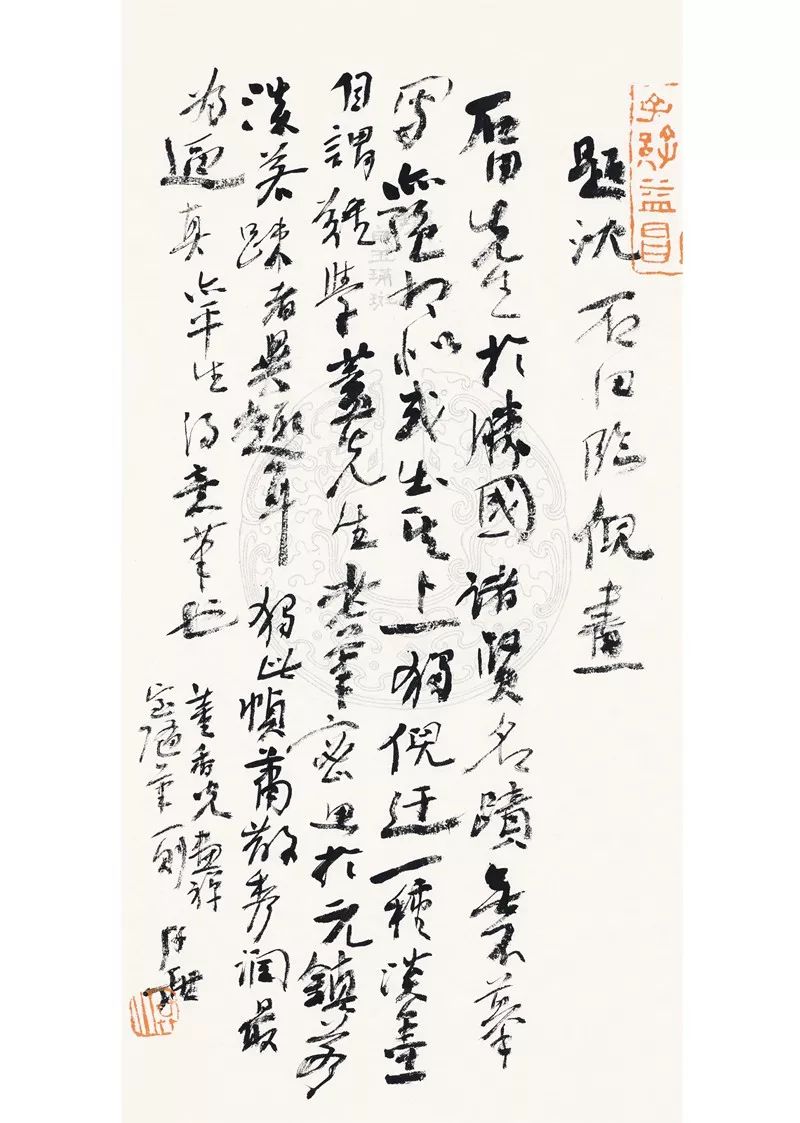 題沈石田臨倪畫
石田先生於勝國諸賢名蹟無不摹
寫亦絕相似或出其上獨倪迂一種淡墨
自謂難學蓋先生老筆密思於元鎮若
淡若疎者異趣耳獨此幀蕭散秀潤最
為逼真亦平生得意筆也
董香光畫禪
室隨筆一則
子孫益昌